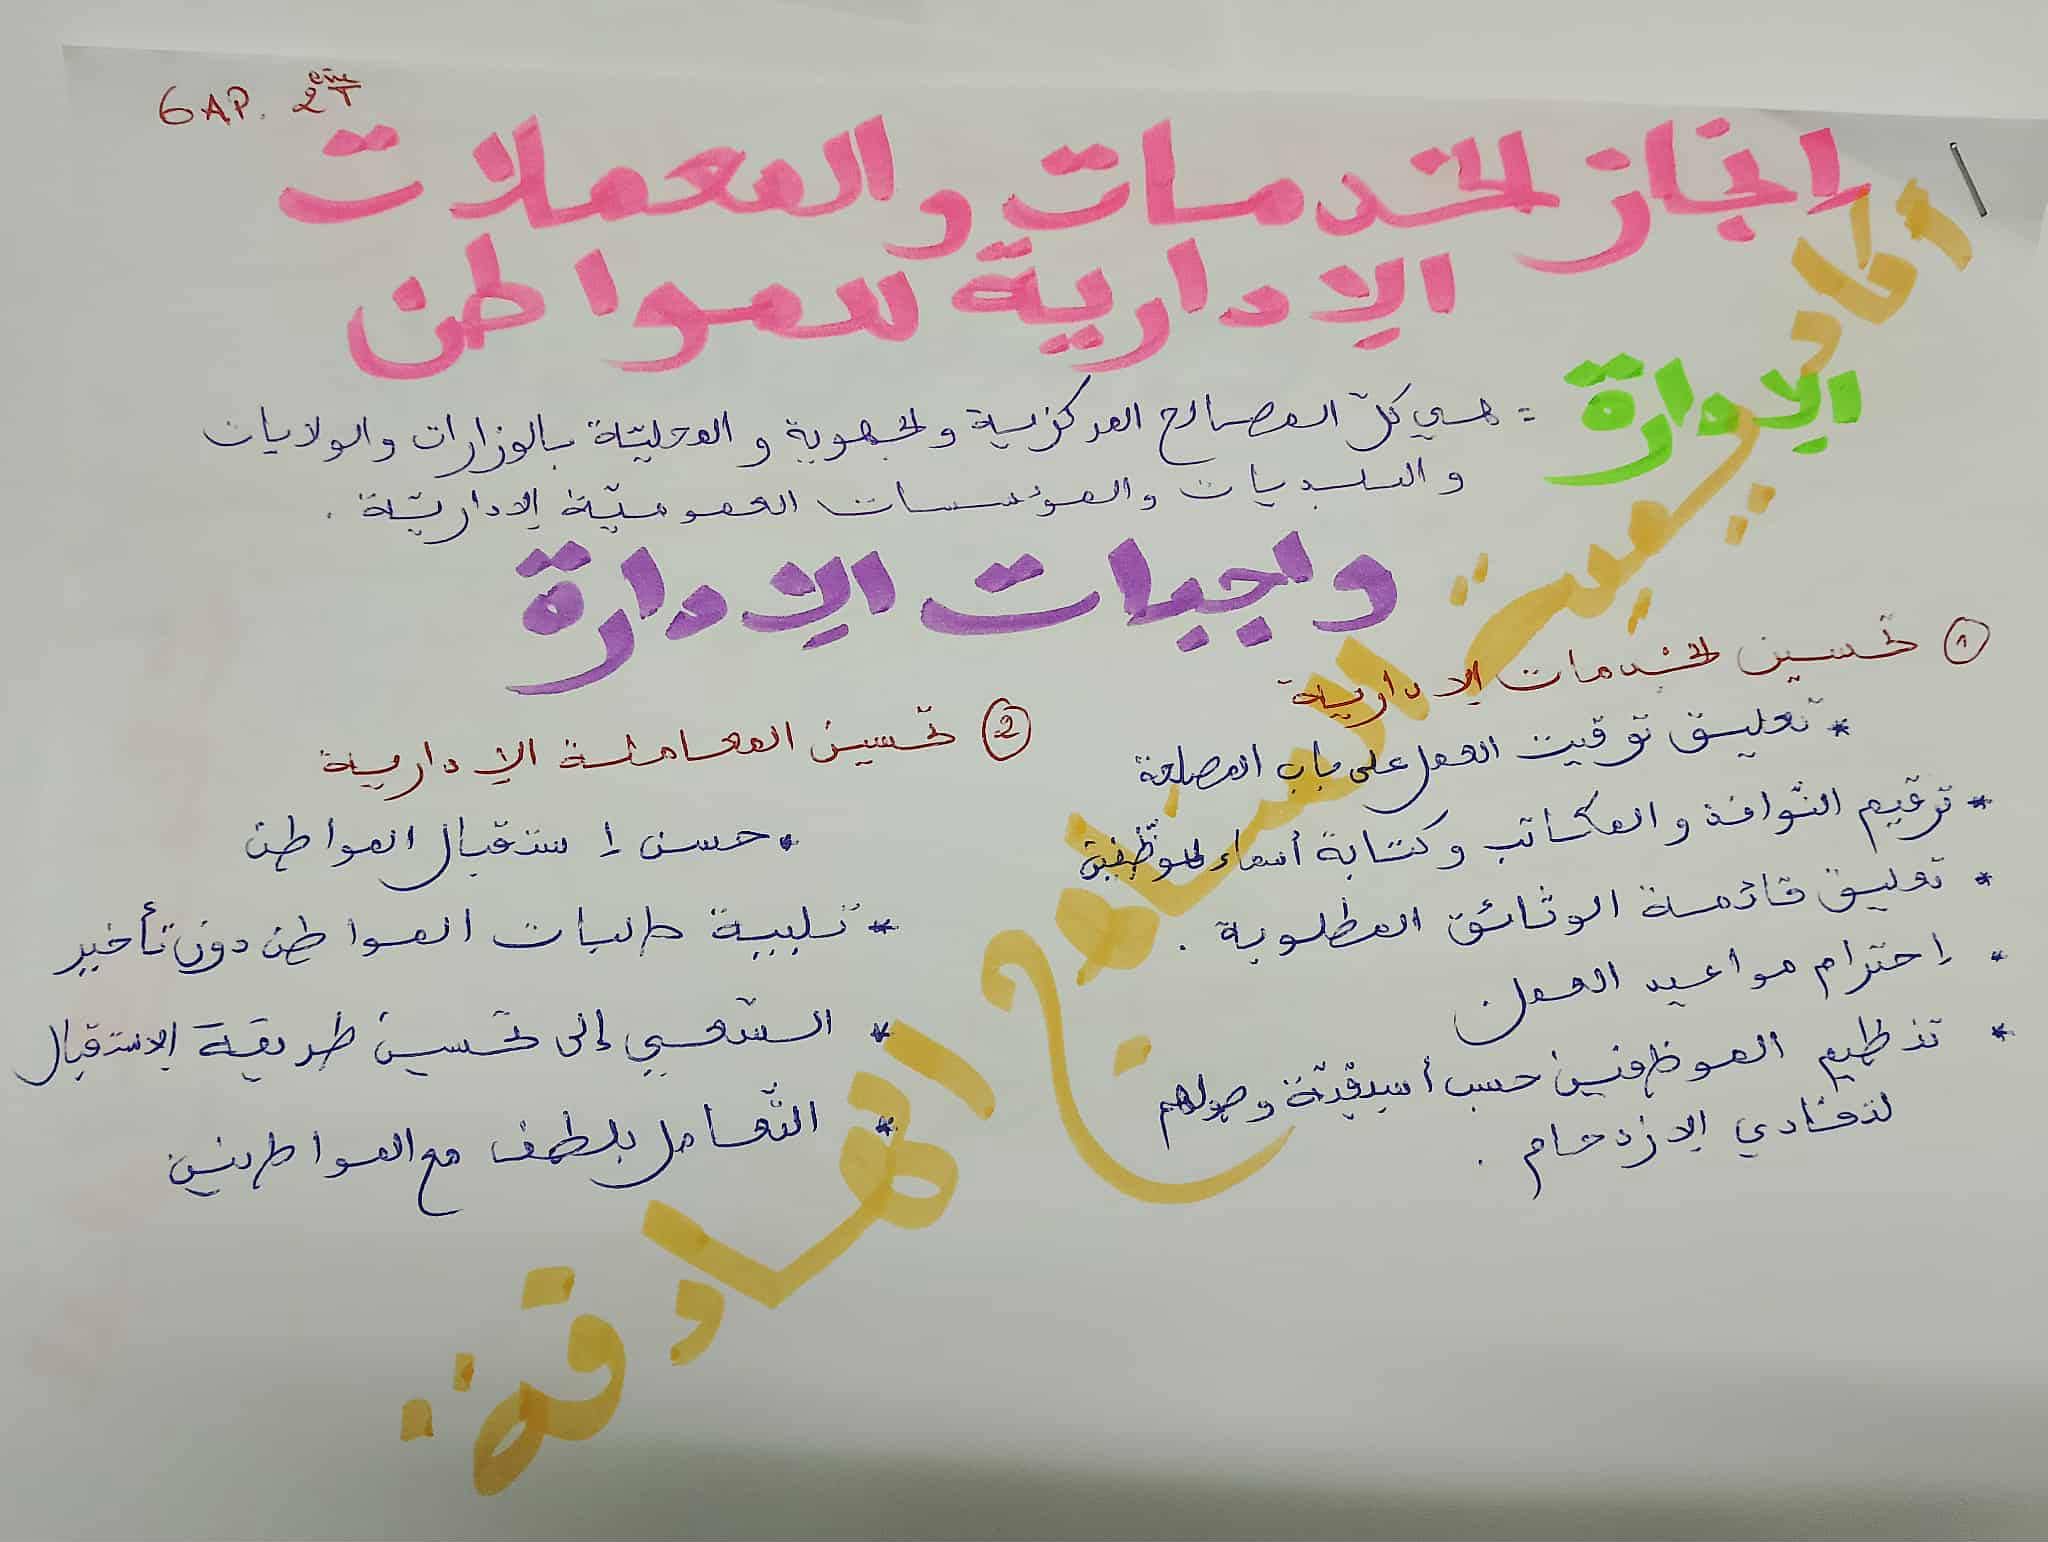 6 AP. 2ème T
إنجاز الخدمات والمعملات
الإدارية للمواطن
الإدارة = هي كلّ المصالح المركزية والجهوية و المحليّة بالوزارات والولايات
و البلديات والمؤسسات العموميّة الإداريّة .
واجبات الإدارة
① تحسين الخدمات الإدارية
* تعليق توقيت العمل على باب المصلحة
* ترقيم النّوافذ و المكاتب وكتابة أسماء الموظّفين
* تعليق قائمة الوثائق المطلوبة .
* إحترام مواعيد العمل .
* تنظيم الموظفين حسب أسبقيّة وصولهم
لتفادي الإزدحام .
② تحسين المعاملة الإدارية
* حسن إستقبال المواطن
* تلبية طلبات المواطن دون تأخير
* السّعي إلى تحسين طريقة الإستقبال
* التّعامل بلطف مع المواطنين